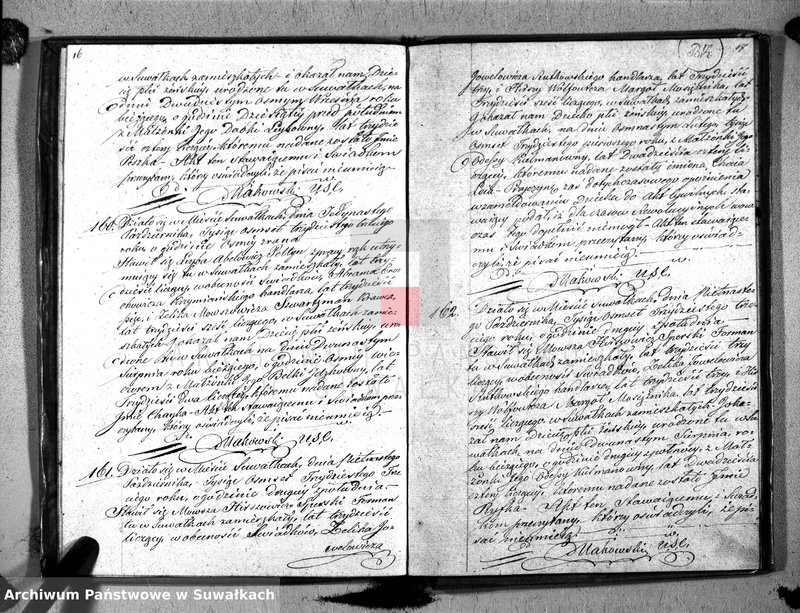 16
w Suwałkach zamieszkałych i okazał nam Dziecię płci żeńskiej urodzone tu w Suwałkach, na
dniu Dwudziestym ósmym Września roku
bieżącego, o godzinie Dziesiątej przed południem
z Małżonki Jego
cztery liczącej, któremu nadane zostało Jmie
Akt ten Stawającemu i Świadkom
przeczytany, który oświadczyli, że pisać nieumieją
Makowski USC.
160. Działo się w Mieście Suwałkach, dnia Jedynastego
Października, Tysiąc osmset trzydziestego trzeciego
roku o godzinie ósmej zrana
Stawił się
się tu w Suwałkach zamieszkały, lat trzy
dzieści liczący, w obecności Świadków, Abrama
handlarza, lat trzydzieści
i Zelika Mowszowicza Szwartzman Krawca,
lat trzydzieści sześć liczącego, w Suwałkach zamie-
szkałych i okazał nam Dziecię płci żeńskiej, uro-
dzone tu w Suwałkach na dniu Dwunastym
Sierpnia roku bieżącego, o godzinie ósmej wie-
czorem z Małżonki Jego Belki lat
Trzydzieści dwa liczącej, któremu nadane zostało
Jmie Chayka - Akt ten stawającemu i Świadkom prze-
czytany, który oświadczyli, że pisać nieumieją
Makowski USC.
161. Działo się w Mieście Suwałkach, dnia Piętnastego
Października, Tysiąc Osmset Trzydziestego Trze-
ciego roku, o godzinie drugiej z południa
Stawił się Mowsza Hirszowicz Sperski Forman
tu w Suwałkach zamieszkały, lat trzydzieści
liczący, w obecności Świadków, Zelika Jo-
welowicza
17
Jowelowicza Siutkowskiego handlarza, lat Trzydzieści
trzy, i Hersz Wolfowicza Margol Mosiężnika, lat
Trzydzieści sześć liczącego, w Suwałkach zamieszkałych
i okazał nam Dziecko płci żeńskiej urodzone tu
w Suwałkach, na dniu Osmnastym Lutego Tysiąc
Osmset Trzydziestego pierwszego roku, z Małżonki Jego
Bejsy Kielmanowny, lat Dwadzieścia cztery li-
czącej, któremu nadane zostały imiona Chaia
Leia - Przyczynę zaś dotychczasowego opóźnienia
w zameldowaniu Dziecka do Akt Cywilnych sta-
wający podał, iż dla czasów rewolucyjnych w owo-
czas Jego dopełnić niemógł - Akt ten stawające-
mu i Świadkom przeczytany, który oświad-
czyli że pisać nieumieją
Makowski USC.
162. Działo się w Mieście Suwałkach, dnia Piętnaste-
go Października, Tysiąc Osmset Trzydziestego trze-
ciego roku, o godzinie drugiej z południa
Stawił się Mowsza Hirszowicz Sperski Forman
tu w Suwałkach zamieszkały, lat trzydzieści trzy
liczący, w obecności Świadków, Zelika Jowelowicza
Siutkowskiego handlarza, lat trzydzieści trzy, i Her-
szy Wolfowicza Margol Mosiężnika, lat trzydzieści
sześć liczącego, w Suwałkach zamieszkałych i oka-
zał nam Dziecko płci żeńskiej urodzone tu w Su-
wałkach, na dniu Dwunastym Sierpnia, ro-
ku bieżącego, o godzinie drugiej z południa, z Mał-
żonki Jego Bejsy Kielmanowny, lat Dwadzieścia
cztery liczącej, któremu nadane zostało Jmie
Akt ten Stawającemu, i Świad-
kom przeczytany, który oświadczyli, że pi-
sać nieumieją
Makowski USC.
Archiwum Państwowe w Suwałkach